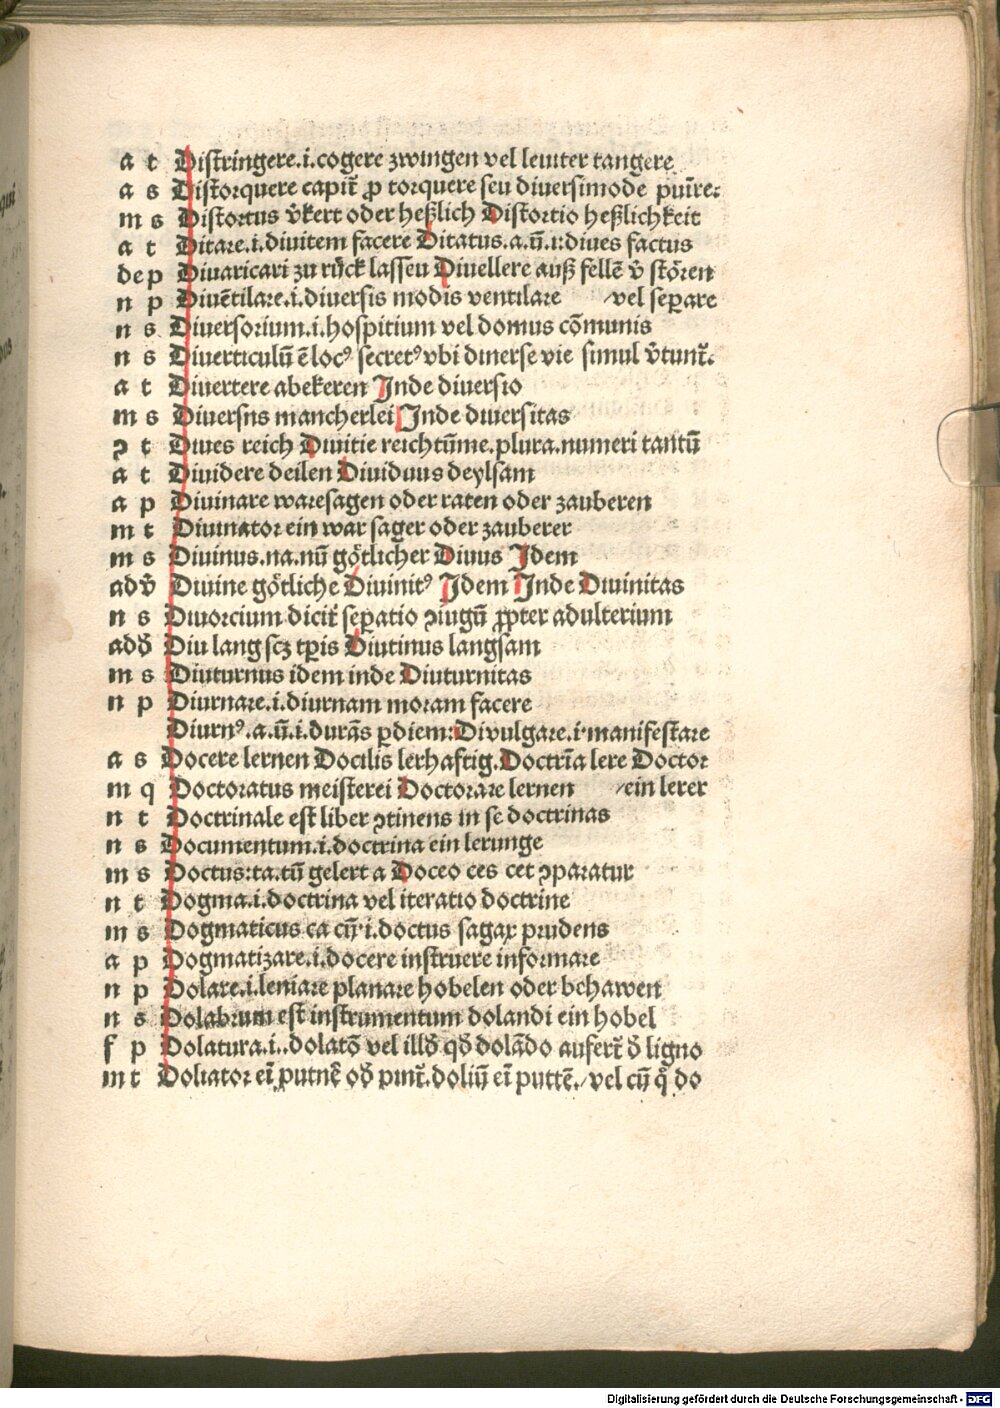 a t Distringere.i.cogere zwingen vel leuiter tangere
a s Distorquere capit̃ ꝓ torquere seu diuersimode puīre:
m s Distortus v̄kert oder heßlich Distortio heßlichkeit
a t Ditare.i.diuitem facere Ditatus.a.ū.i:diues factus
de p Diuaricari zu rück lassen Diuellere auß fellē v̄ stören
n p Diuētilare.i.diuersis modis ventilare /vel seꝑare
n s Diuersorium.i.hospitium vel domus cōmunis
n s Diuerticulū ē locꝰ secretꝰ vbi diuerse vie simul v̄tunt̃.
a t Diuertere abekeren Inde diuersio
m s Diuersns mancherlei Inde diuersitas
ꝯ t Diues reich Diuitie reichtūme.plura.numeri tantū
a t Diuidere deilen Diuiduus deylsam
a p Diuinare waresagen oder raten oder zauberen
m t Diuinator ein war sager oder zauberer
m s Diuinus.na.nū götlicher Diuus Idem
adv̄ Diuine götliche Diuinitꝰ Idem Inde Diuinitas
n s Diuorcium dicit̃ seꝑatio ꝯiugū ꝓpter adulterium
adv̄ Diu lang scz tꝑis Diutinus langsam
m s Diuturnus idem inde Diuturnitas
n p Diurnare.i.diurnam moram facere
Diurnꝰ.a.ū.i.durās ꝑdiem:Divulgare.i.manifestare
a s Docere lernen Docilis lerhaftig.Doctrīa lere Doctor
m q Doctoratus meisterei Doctorare lernen /ein lerer
n t Doctrinale est liber ꝯtinens in se doctrinas
n s Documentum.i.doctrina ein lerunge
m s Doctus:ta.tū gelert a Doceo ces cet ꝯparatur
n t Dogma.i.doctrina vel iteratio doctrine
m s Dogmaticus ca cū.i.doctus sagax prudens
a p Dogmatizare.i.docere instruere informare
n p Dolare.i.leniare planare hobelen oder behawen
n s Dolabrum est instrumentum dolandi ein hobel
f p Dolatura.i..dolatō vel illđ qđ dolādo aufert̃ đ ligno
m t Doliator eī putnē ođ pint̃.doliū eī puttē./vel cū q̊ do
Digitalisierung gefördert durch die Deutsche Forschungsgemeinschaft - DFG